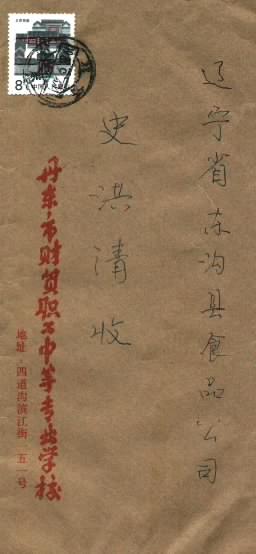 辽宁省东沟县食品公司
史洪清收
丹东市财贸职工中等专业学校
地址：四道沟滨江街 五一号
8分